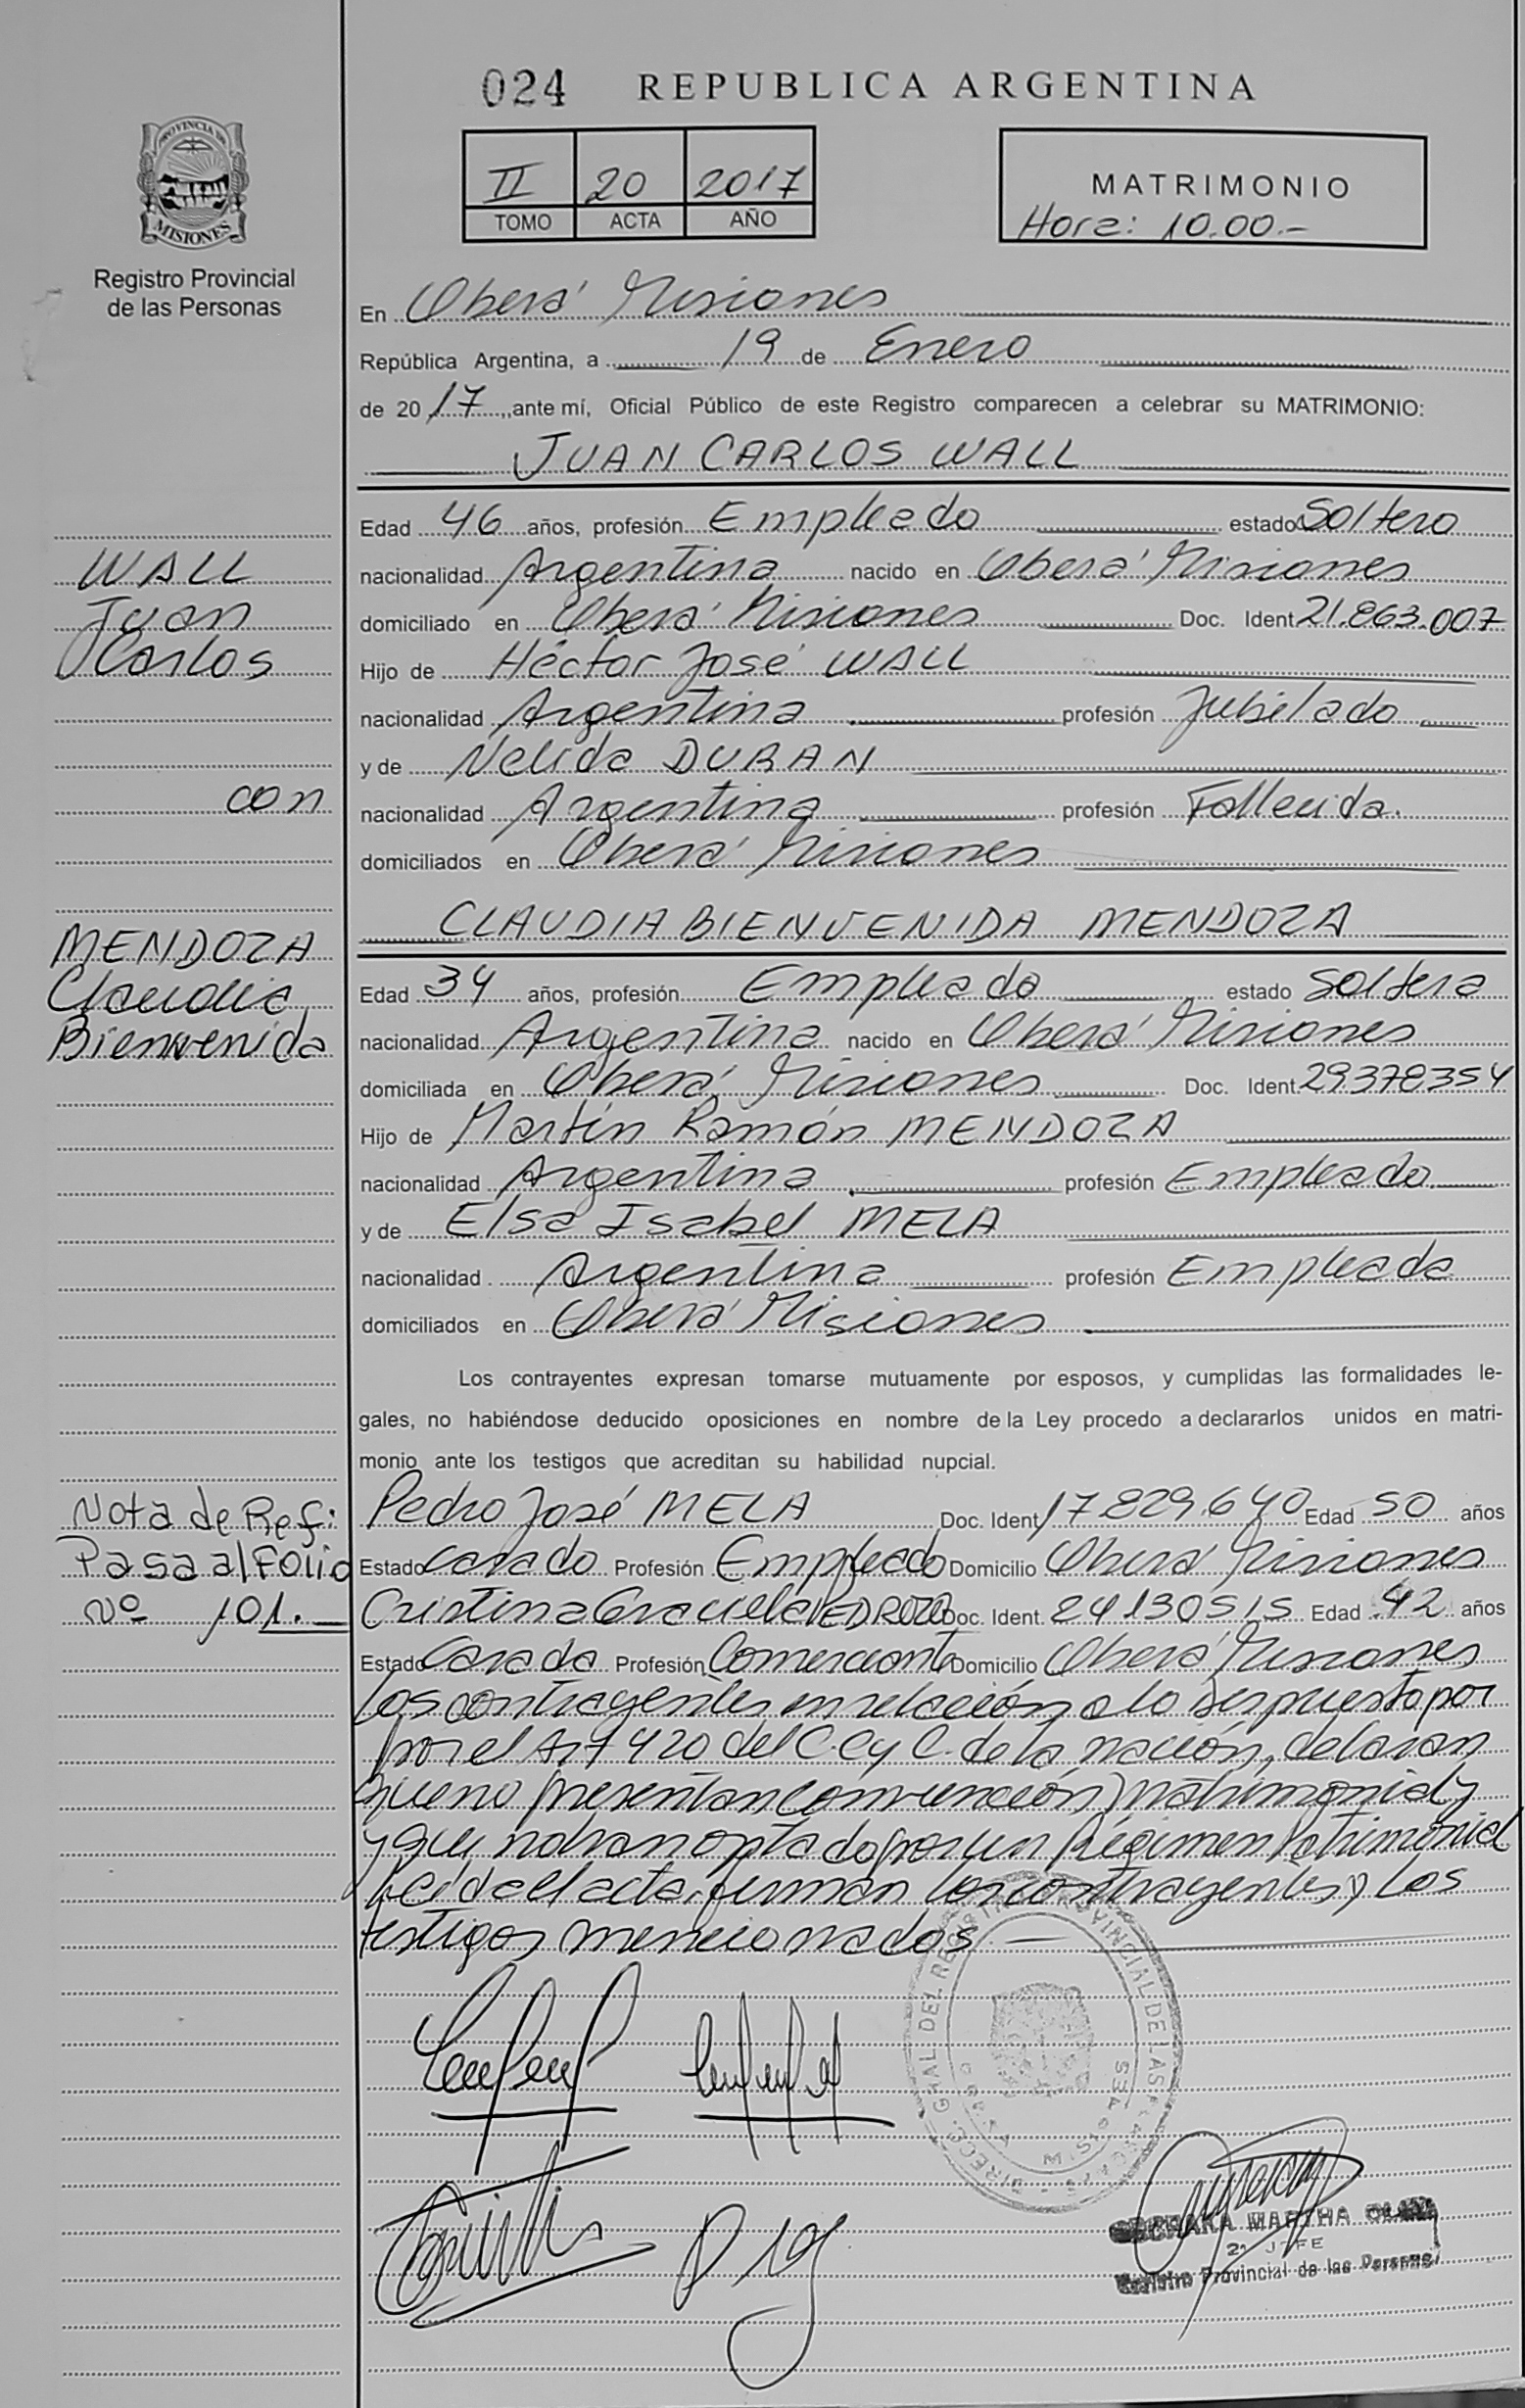 024 REPUBLICA ARGENTINA
PROVINCIA DE
MISIONES
Registro Provincial
de las Personas
II 20 2017
TOMO ACTA AÑO
MATRIMONIO
Hora: 10.00.-
En Oberá Misiones
República Argentina, a 19 de Enero
de 20 17, ante mí, Oficial Público de este Registro comparecen a celebrar su MATRIMONIO:
JUAN CARLOS WALL
Edad 46 años, profesión Empleado estado Soltero
WALL
nacionalidad Argentina nacido en Oberá Misiones
Juan
domiciliado en Oberá Misiones Doc. Ident 21.863.007
Carlos
Hijo de Héctor José WALL
nacionalidad Argentina profesión Jubilado
y de Nelida DURAN
con
nacionalidad Argentina profesión Fallecida.
domiciliados en Oberá Misiones
CLAUDIA BIENVENIDA MENDOZA
MENDOZA
Claudia
Edad 34 años, profesión Empleada estado Soltera
Bienvenida
nacionalidad Argentina nacido en Oberá Misiones
domiciliada en Oberá Misiones Doc. Ident. 29378354
Hijo de Martín Ramón MENDOZA
nacionalidad Argentina profesión Empleado
y de Elsa Isabel MELA
nacionalidad Argentina profesión Empleada
domiciliados en Oberá Misiones
Los contrayentes expresan tomarse mutuamente por esposos, y cumplidas las formalidades le-
gales, no habiéndose deducido oposiciones en nombre de la Ley procedo a declararlos unidos en matri-
monio ante los testigos que acreditan su habilidad nupcial.
Nota de Ref:
Pedro José MELA Doc. Ident 17829.640 Edad 50 años
Pasa al Folio
Estado Casado Profesión Empleado Domicilio Oberá Misiones
Nº 101.
Cristina Graciela PEDROZO Doc. Ident. 24130515 Edad 42 años
Estado Casada Profesión Comerciante Domicilio Oberá Misiones
Los contrayentes en relación a lo dispuesto por
por el Art 420 del C.C y C. de la nación, delaran
que no presentan convención matrimonial y
y que no han optado por un Régimen Patrimonial
Leída el acta firman los contrayentes y los
testigos mencionados
DIRECC. GRAL DEL REGISTRO PROVINCIAL DE LAS PERSONAS
OBERA MISIONES
MARTHA
2º JEFE
Registro Provincial de las Personas